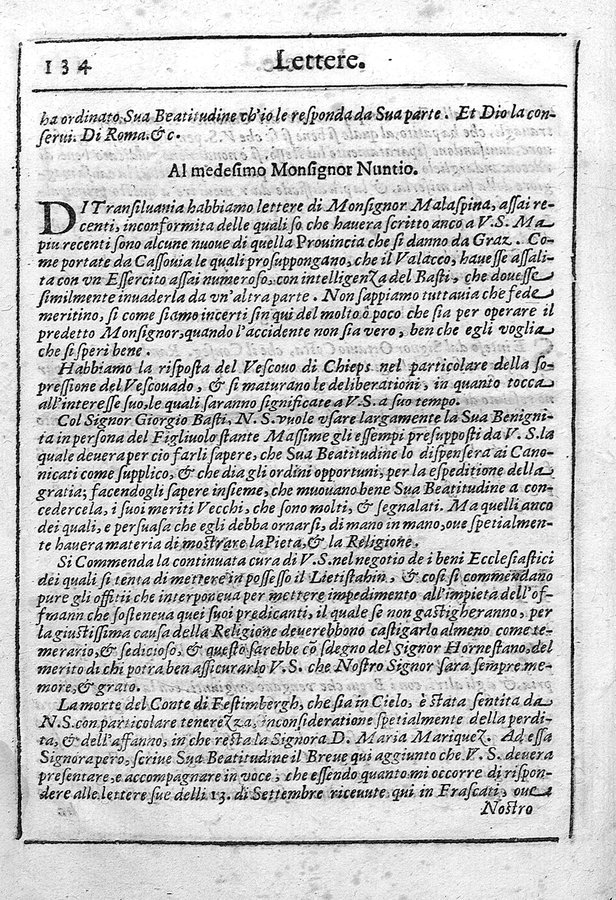 134
Lettere.
ha ordinato Sua Beatitudine ch'io le responda da Sua parte. Et Dio la con-
servi. Di Roma.&c.
Al medesimo Monsignor Nuntio.
DI Transiluania habbiamo lettere di Monsignor Malaspina, assai re-
centi, inconformita delle quali so che hauera scritto anco a V. S. Ma
piu recenti sono alcune nuoue di quella Prouincia che si danno da Graz. Co-
me portate da Cassouia le quali prosuppongano, che il Valacco, hauesse assali-
ta con vn Essercito assai numeroso, con intelligenza del Basti, che douesse
similmente inuaderla da vn'altra parte. Non sappiamo tuttauia che fede
meritino, si come siamo incerti sin qui del molto ò poco che sia per operare il
predetto Monsignor, quando l'accidente non sia vero, ben che egli voglia
che si speri bene.
Habbiamo la risposta del Vescouo di Chieps nel particolare della so-
pressione del Vescouado, & si maturano le deliberationi, in quanto tocca
all'interesse suo, le quali saranno significate a V. S. a suo tempo.
Col Signor Giorgio Basti, N. S. vuole vsare largamente la Sua Benigni-
ta in persona del Figliuolo stante Massime gli essempi presupposti da V. S. la
quale deuera per cio farli sapere, che Sua Beatitudine lo dispensera ai Cano-
nicati come supplico, & che dia gli ordini opportuni, per la espeditione della
gratia; facendogli sapere insieme, che muouano bene Sua Beatitudine a con-
cedercela, i suoi meriti Vecchi, che sono molti, & segnalati. Ma quelli anco
dei quali, e persuasa che egli debba ornarsi, di mano in mano, oue spetialmen-
te hauera materia di mostrare la Pieta, & la Religione.
Si Commenda la continuata cura di V. S. nel negotio de i beni Ecclesiastici
dei quali si tenta di mettere in possesso il Lietistahin, & cosi si commendano
pure gli offitii che interponeua per mettere impedimento all'impieta dell'of-
fmann che sosteneua quei suoi predicanti, il quale se non gastigheranno, per
la giustissima causa della Religione deuerebbono castigarlo almeno come te-
merario, & sedicioso, & questo sarebbe cō sdegno del Signor Hornestano, del
merito di chi potra ben assicurarlo V. S. che Nostro Signor sara sempre me-
more, & grato.
La morte del Conte di Festimbergh, che sia in Cielo, è stata sentita da
N. S. con particolare tenerezza, in consideratione spetialmente della perdi-
ta, & dell'affanno, in che resta la Signora D. Maria Mariquez. Ad essa
Signora pero, scriue Sua Beatitudine il Breue qui aggiunto che V. S. deuera
presentare, e accompagnare in voce, che essendo quanto mi occorre di rispon-
dere alle lettere sue delli 13. di Settembre riceuute qui in Frascati, oue
Nostro